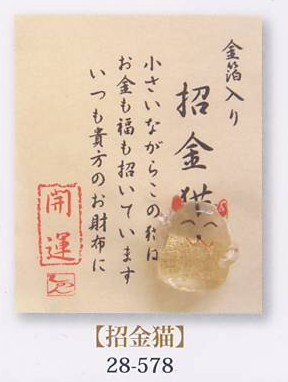 金箔入り
招金猫
小さいながらこの私は
お金も福も招いています
いつも貴方のお財布に
開運
【招金猫】
28-578